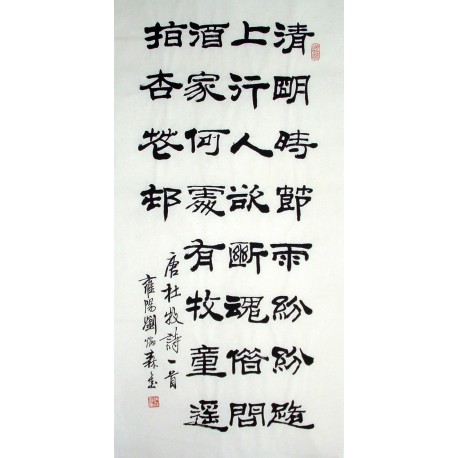 清眀時節雨紛紛路
上行人欲斷魂借問
酒家何處有牧童遥
指杏花邨
唐杜牧詩一首
雍陽劉炳森書